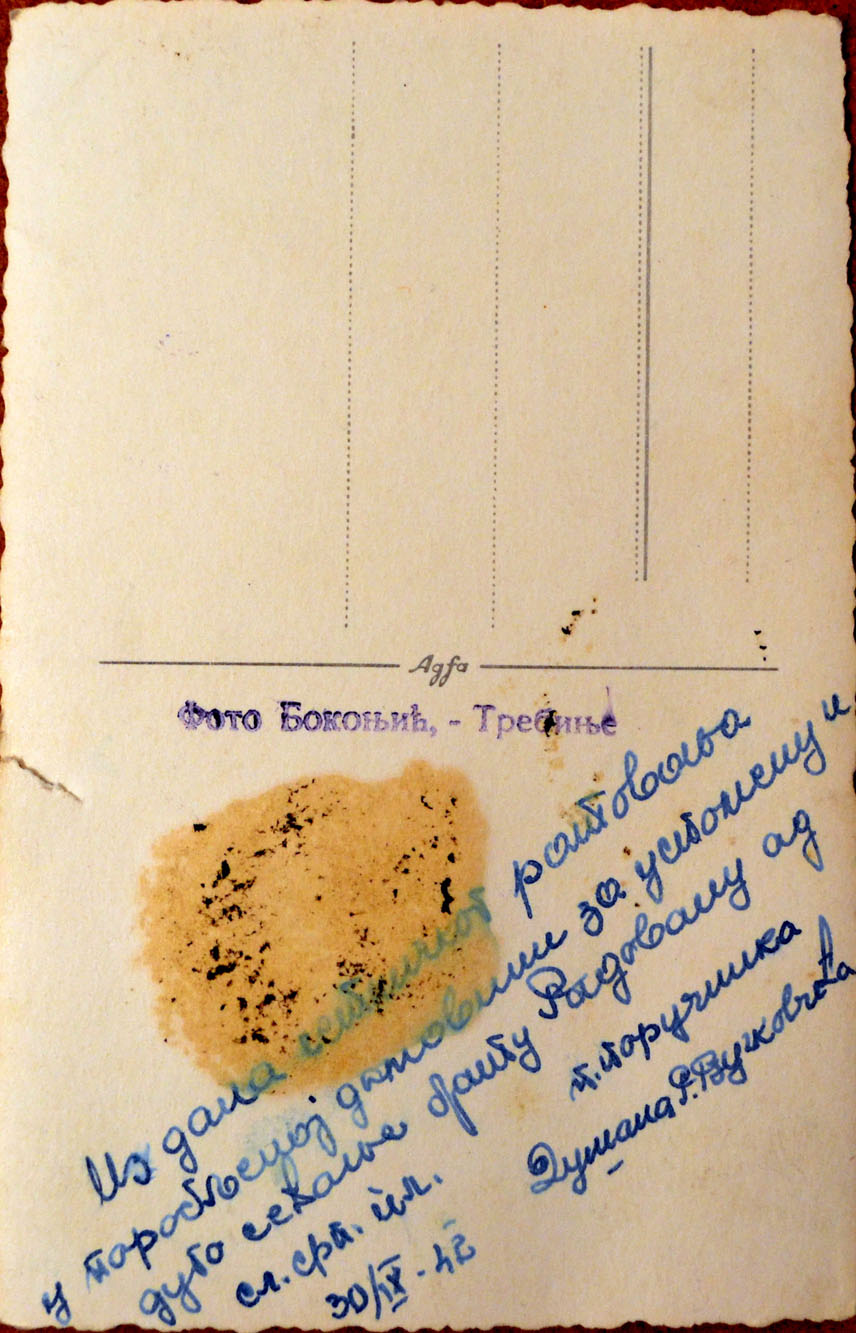 Agfa
Фото Бокоњић, - Требиње
Из дана четничког ратовања
у поробљеној домовини за успомену и
дуго сећање брату Радовану од
п.поручника
Душана Р. Вучковића
сл. срп.
30/IX - 42